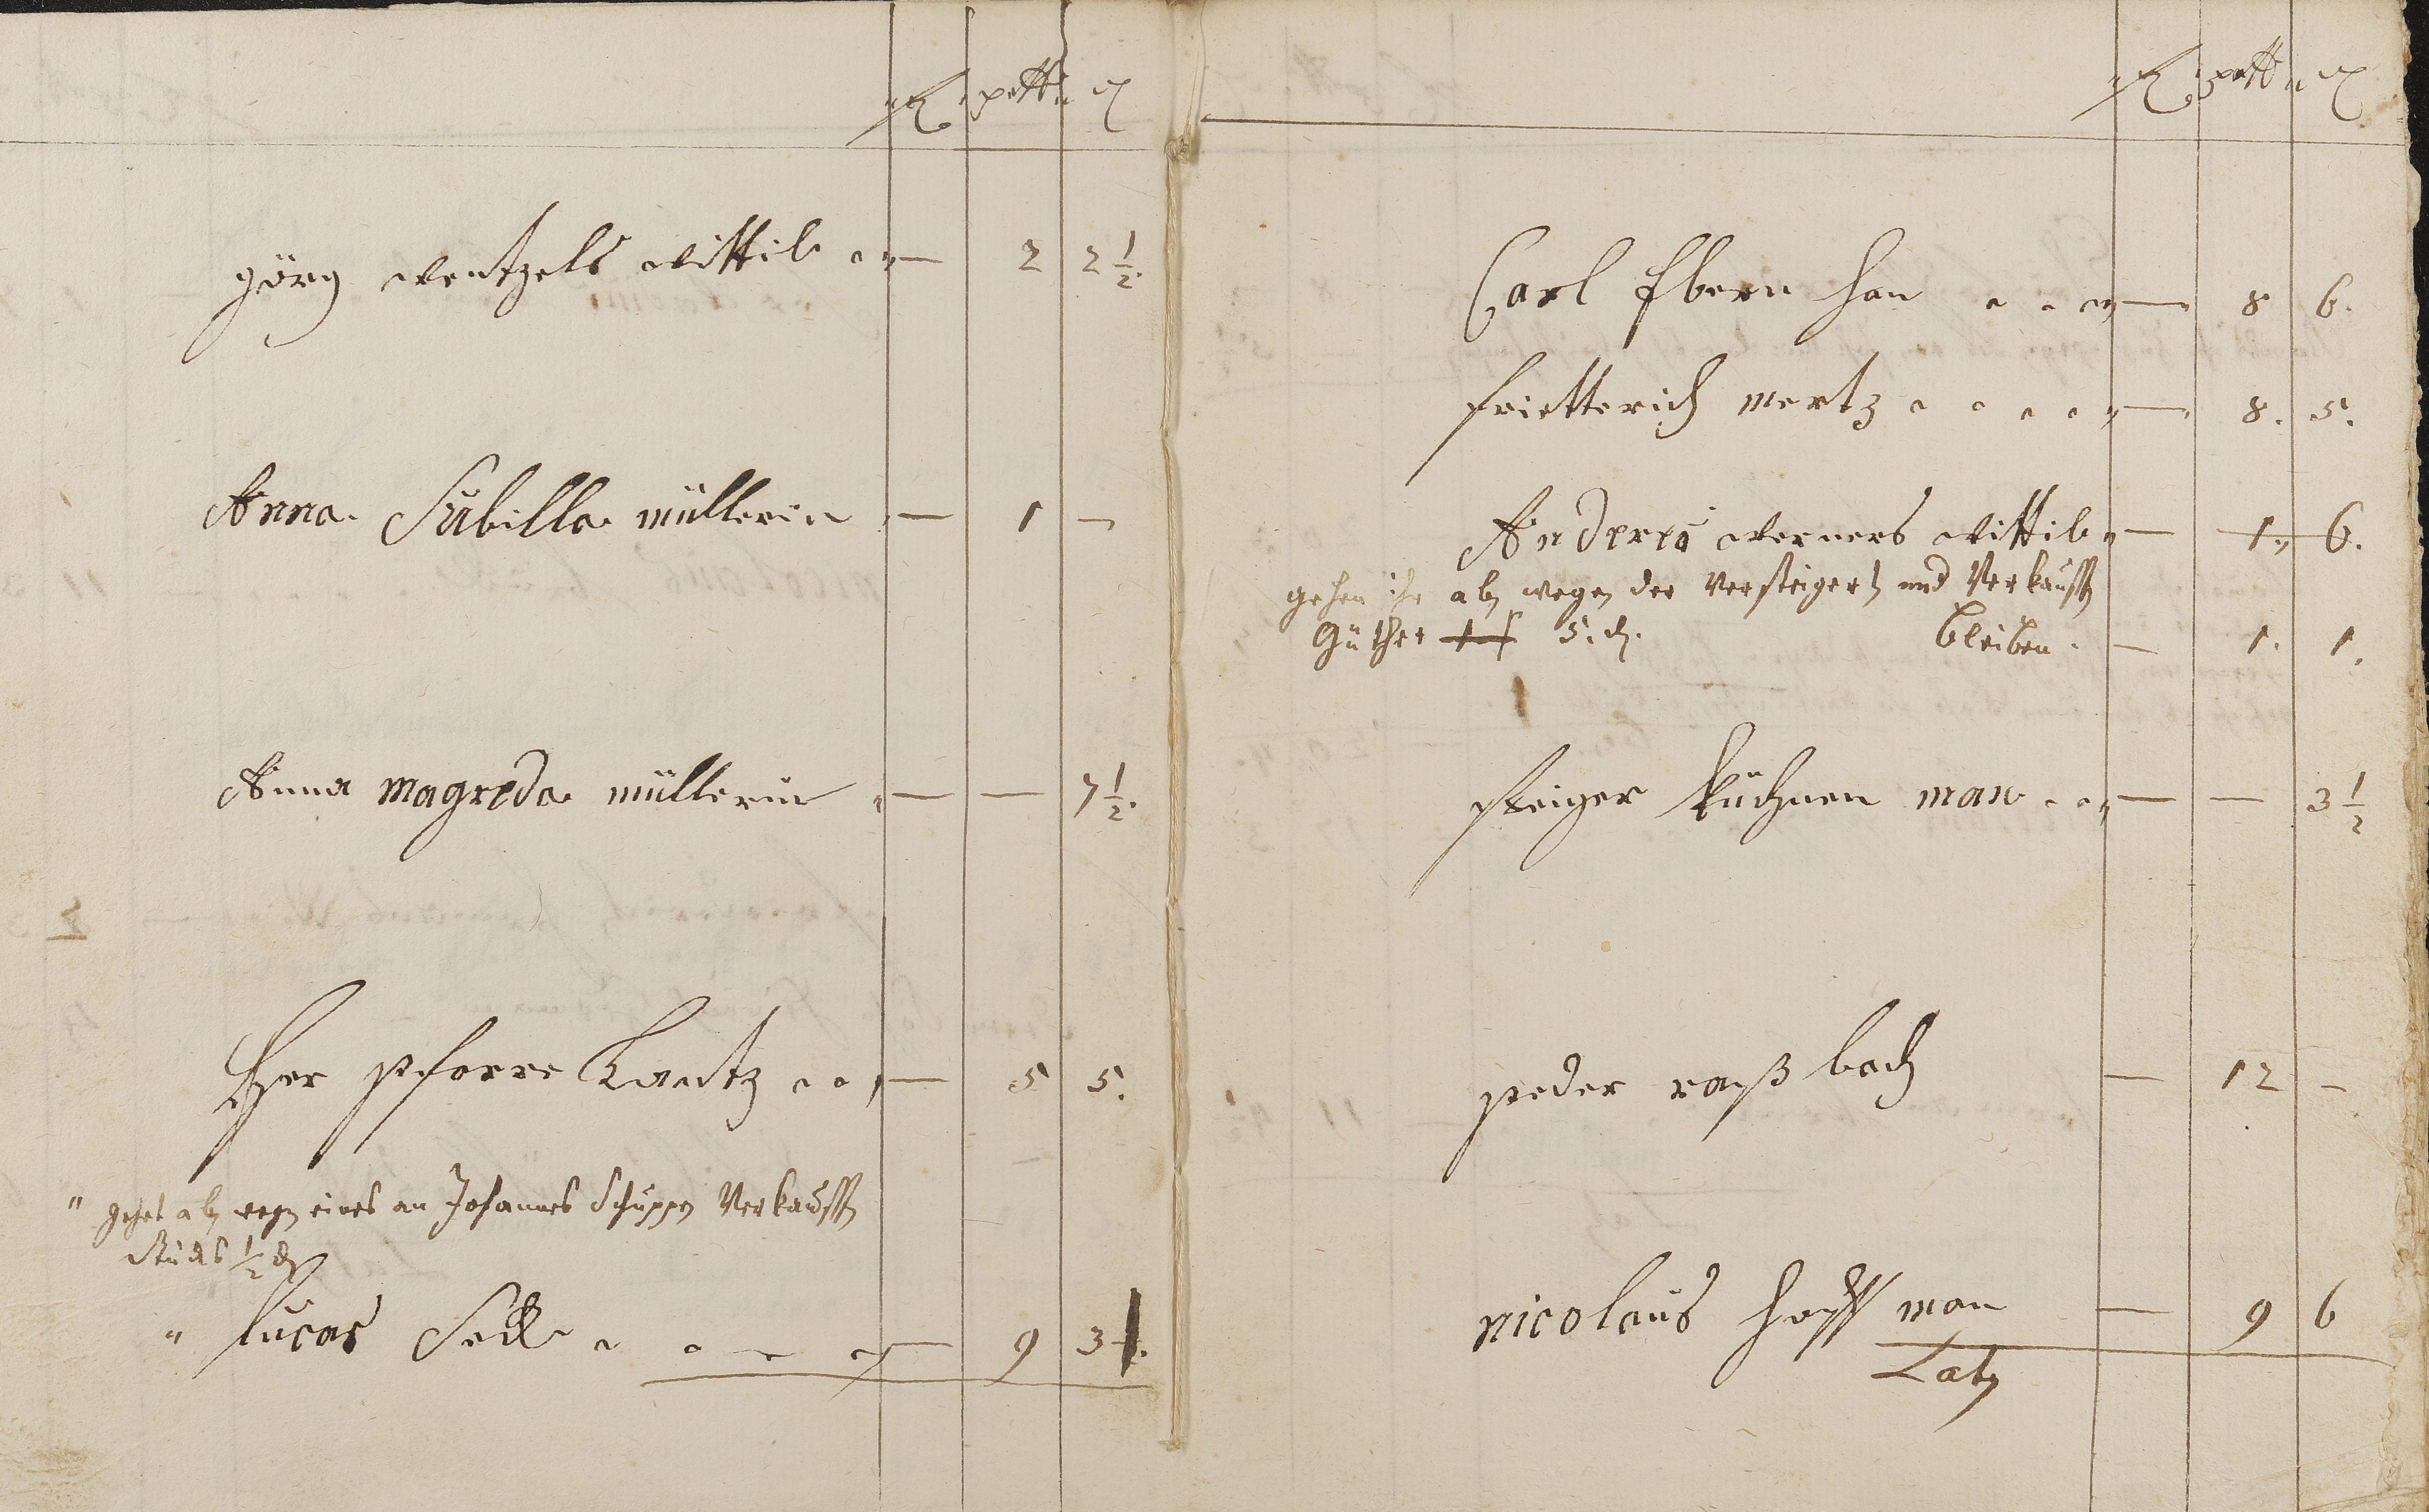 fl pett. d
görg wentzels wittib — 2 2 1/2.
Anna Sübilla müllerin — 1 —
Anna magreda müllerin — — 7 1/2.
Her pfarre Lantz — 5 5.
" gehet ab wegen eines an Johannes Schuppen Verkaufften
Stücks 1/2 d
" lucas Seck — 9 3
fl pett. d
Carl Ebern han — 8 6.
frietterich mertz — 8. 5.
Andreas werners wittib — 1. 6.
gehen ihr ab wegen der Versteigert und Verkaufften
Güther 5. d. bleiben. — 1. 1.
steiger küchnen man — — 3 1/2
peder raßbach — 12 —
nicolaus hoffman — 9 6
Lat